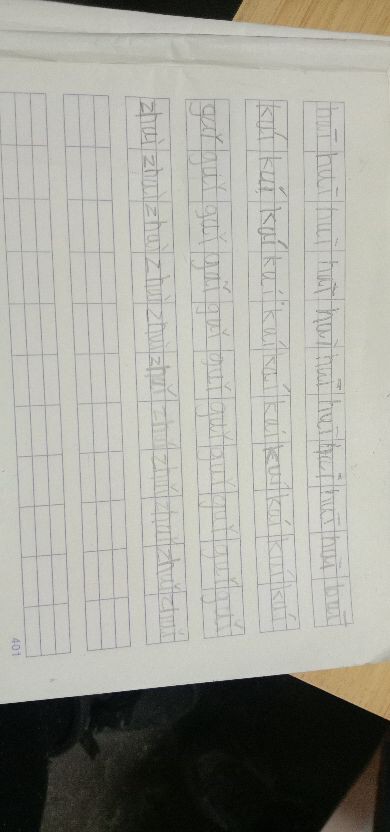 huī huī huī huī huī huī huī huī huī huī huī
kuí kuí kuí kuí kuí kuí kuí kuí kuí kuí kuí
guǐ guǐ guǐ guǐ guǐ guǐ guǐ guǐ guǐ guǐ guǐ
zhuì zhuì zhuì zhuì zhuì zhuì zhuì zhuì zhuì zhuì zhuì
401